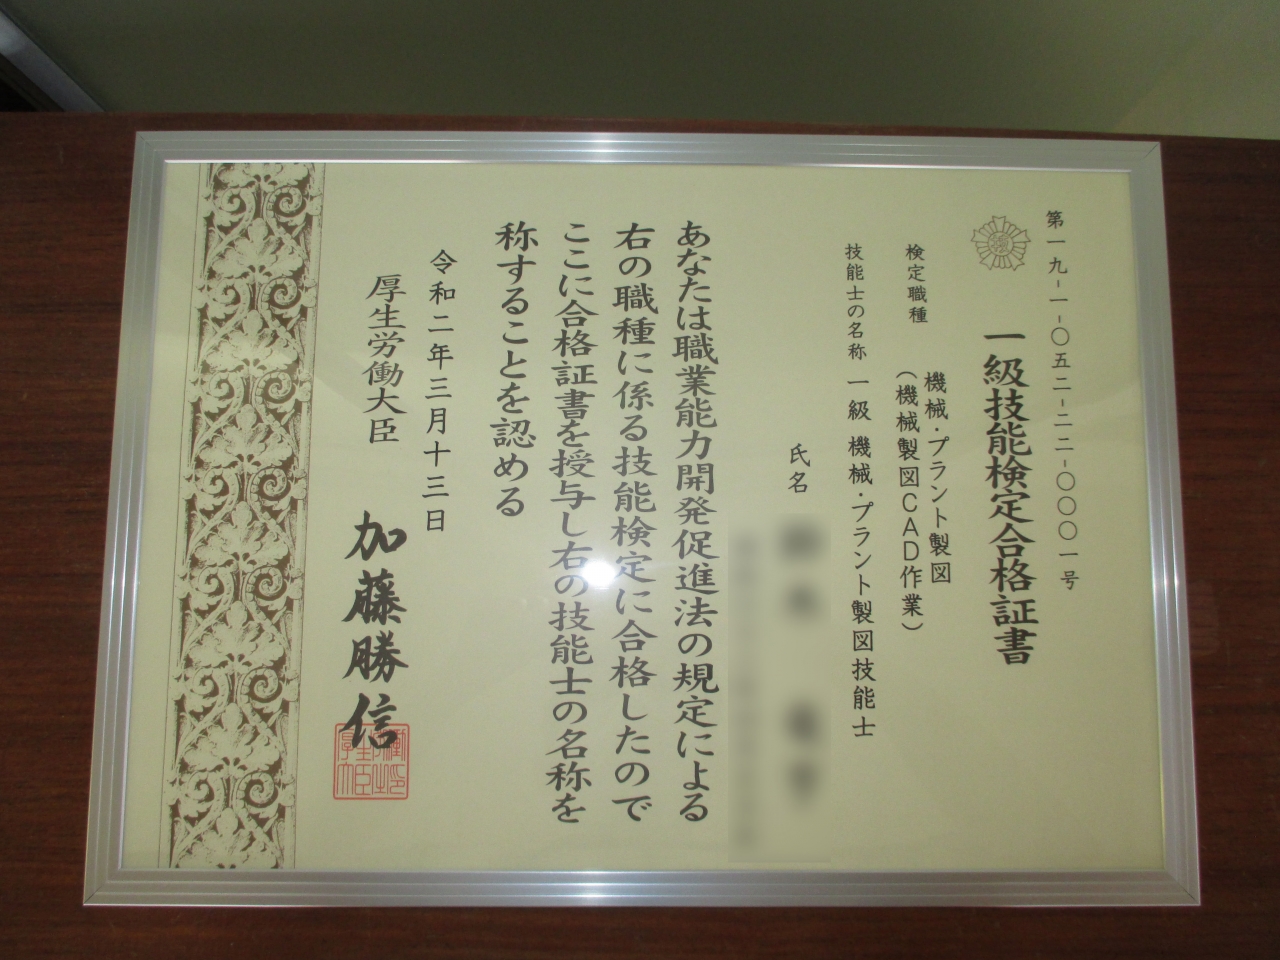 第一九-一-〇五二-二二-〇〇〇一号
一級技能検定合格証書
検定職種 機械・プラント製図
（機械製図CAD作業）
技能士の名称 一級 機械・プラント製図技能士
氏名
あなたは職業能力開発促進法の規定による
右の職種に係る技能検定に合格したので
ここに合格証書を授与し右の技能士の名称を
称することを認める
令和二年三月十三日
厚生労働大臣 加藤勝信